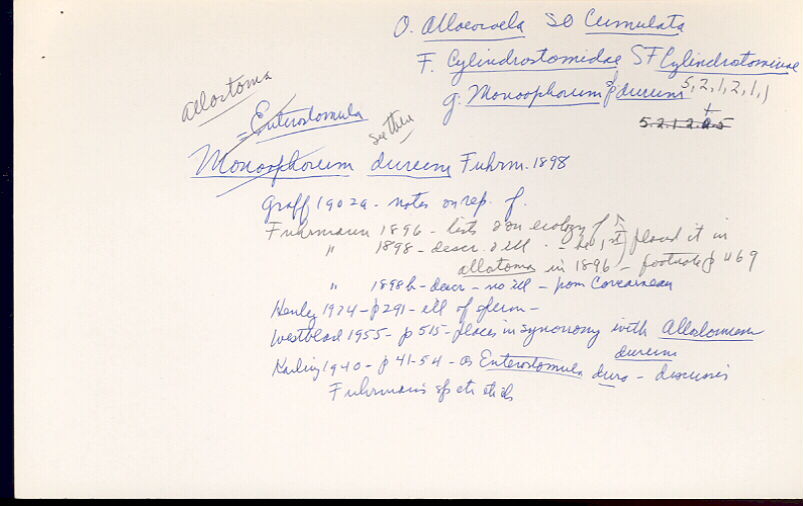 O. Alloeocoela SO Cumulata
F. Cylindrostomidae SF Cylindrostominae
g. Monoophorum sp durum 5,2,1,2,1,1
5.2.1.2.2.5
allostoma
= Enterostomula
see this
Monoophorum durum Fuhrm. 1898
Graff 1902a - notes on rep. of.
Fuhrmann 1896 - lists on ecology of
" 1898 - descr. & ill - placed it in
allostoma in 1896 - footnote p 469
" 1898b - descr - no ill - from Concarneau
Henley 1974 - p 291 - ill of sperm -
Westblad 1955 - p 515 - places in synonomy with Allostoma
durum
Karling 1940 - p 41-54 - as Enterostomula dura - discusses
Fuhrman's sp etc